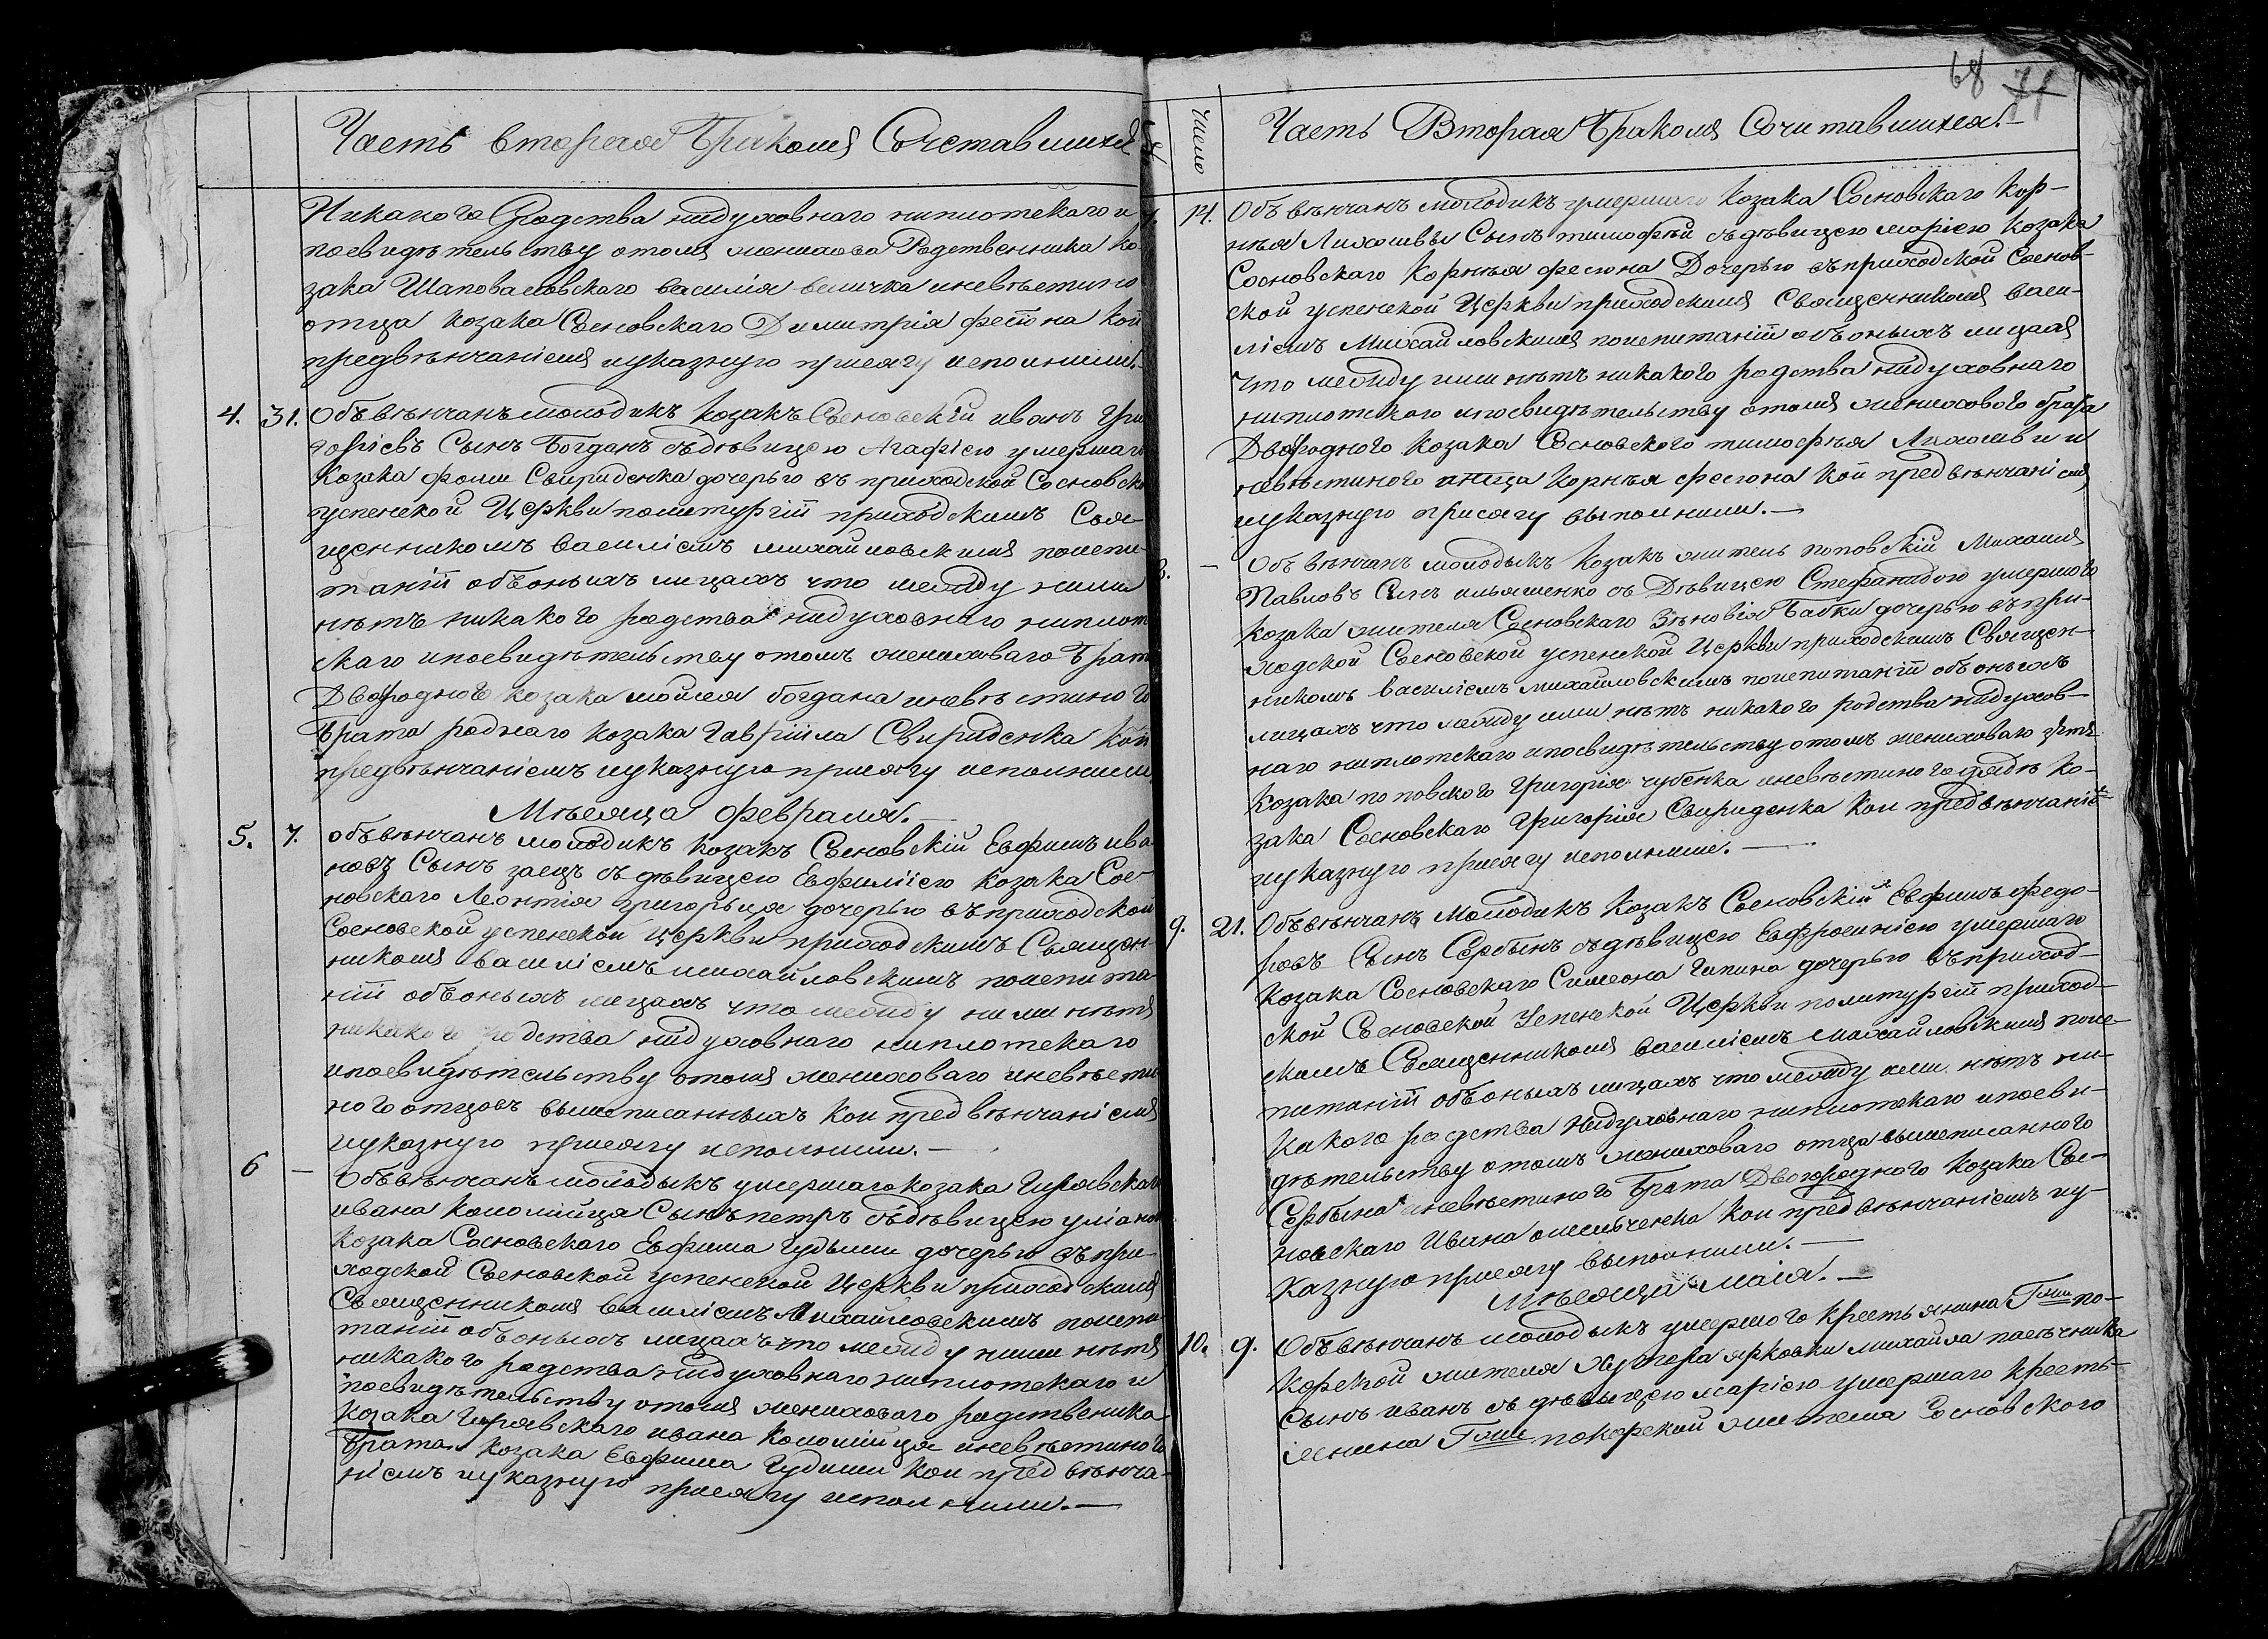 Часть вторая Бракомъ Сочетавшихся
Никакого Родства нидуховнаго ниплотскаго и
посвидѣтельству отомъ женихова Родственника ко-
зака Шаповаловскаго василія величка иневѣстино
отца козака Сосновскаго Димитрія фесюна кои
предвѣнчаніемъ иуказную присягу исполнили.
4. 31. Объвѣнчанъ молодикъ козакъ Сосновскій иванъ Гри
горіевъ Сынъ Богданъ съдѣвицею Агафіею умершаго
козака фомы Свириденка дочерью въ приходской Сосновско
успенской Церкви политургіи приходскимъ Свя-
щенникомъ василіемъ михайловскимъ поиспы
таніи объоныхъ лицахъ что между ними
нѣтъ никакого родства нидуховнаго ниплот
скаго ипосвидѣтельству отомъ жениховаго Брата
Двороднаго козака мойсея богдана иневѣстиного
Брата роднаго козака Гавріила Свириденка кои
предвѣнчаніемъ иуказную присягу исполнили
Мѣсяца февраля.
5. 7. объвѣнчанъ молодикъ козакъ Сосновскій Евфимъ ива
новъ Сынъ заецъ съ дѣвицею Евфиміею козака Сос-
новскаго Леонтія григорьця дочерью въприходской
Сосновской успенской церкви приходскимъ Священ-
никомъ василіемъ михайловскимъ поиспыта-
ніи объоныхъ лицахъ что между ними нѣтъ
никакого родства нидуховнаго ниплотскаго
ипосвидѣтельству отомъ жениховаго иневѣсти
ного отцовъ вышеписанныхъ кои предвѣнчаніемъ
иуказную присягу исполнили.—
6 — Объвѣнчанъ молодыкъ умершаго козака Гирявскаго
ивана коломійця Сынъ петръ съдѣвицею уліаною
козака Сосновскаго Евфима Гудыми дочерью въ при-
ходской Сосновской успенской Церкви приходскимъ
Священникомъ василіемъ Михайловскимъ поиспы
таніи объоныхъ лицахъ что между ними нѣтъ
никакого родства нидуховнаго ниплотскаго и
посвидѣтельству отомъ жениховаго родственика
козака Гирявскаго ивана коломійця иневѣстиного
Брата козака Евфима Гудими кои пред вѣнча-
ніемъ иуказную присягу исполнили.—
68 71
Число
Часть Вторая Бракомъ Сочитавшихся.—
7. 14. Объвѣнчанъ молодикъ умершаго козака Сосновскаго Кор-
нѣя Лихошвы Сынъ тимофѣй съдѣвицею маріею козака
Сосновскаго Корнѣя фесюна Дочерью въприходской Соснов-
ской успенской Церкви приходскимъ Священникомъ васи-
ліемъ Михайловскимъ поиспитаніи объоныхъ лицахъ
что между ими нѣтъ никакого родства нидуховнаго
ниплотского ипосвидѣтельству отомъ женихового брата
Двородного козака Сосновского тимофѣя Лихошвы и
невѣстиного отца Корнѣя фесюна кои предвѣнчаніемъ
иуказную присягу выполнили.—
8. — Объвѣнчанъ молодыкъ козакъ житель поповскій Михаилъ
Павловъ Сынъ ильяшенко съ Дѣвицею Стефанидою умершого
козака жителя Сосновскаго Зѣновія Бабки дочерью въпри-
ходской Сосновской успенской Церкви приходскимъ Священ-
никомъ василіемъ михайловскимъ поиспитаніи объоныхъ
лицахъ что между ими нѣтъ никакого родства нидухов-
наго ниплотскаго ипосвидѣтельству отомъ жениховаго зятя
козака поповского Григорія чубенка иневѣстиного дядѣ ко-
зака Сосновскаго Григорія Свириденка кои предвѣнчаніе
иуказную присягу исполнили.—
9. 21. Объвѣнчанъ Молодикъ козакъ Сосновскій Евфимъ федо-
ровъ Сынъ Сербынъ съдѣвицею Евфросиніею умершаго
козака Сосновскаго Симеона Гапина дочерью въприход-
ской Сосновской Успенской Церкви политургіи приход-
скимъ Священникомъ василіемъ михайловскимъ поис-
питаніи объоныхъ лицахъ что между ими нѣтъ ни-
какого родства нидуховнаго ниплотскаго ипосви-
дѣтельству отомъ жениховаго отца вышеписанного
Сербына иневѣстиного Брата Двородного козака Сос-
новскаго Ивана омельченка кои предвѣнчаніемъ иу-
казную присягу выполнили.—
мѣсяца маія.—
10. 9. Объвѣнчанъ молодыкъ умершого крестьянина Гжи по-
корской жителя хутора ярковки михайла пасѣчника
Сынъ иванъ съ дѣвицею маріею умершаго кресть-
янина Гжи покорской жителя Сосновского